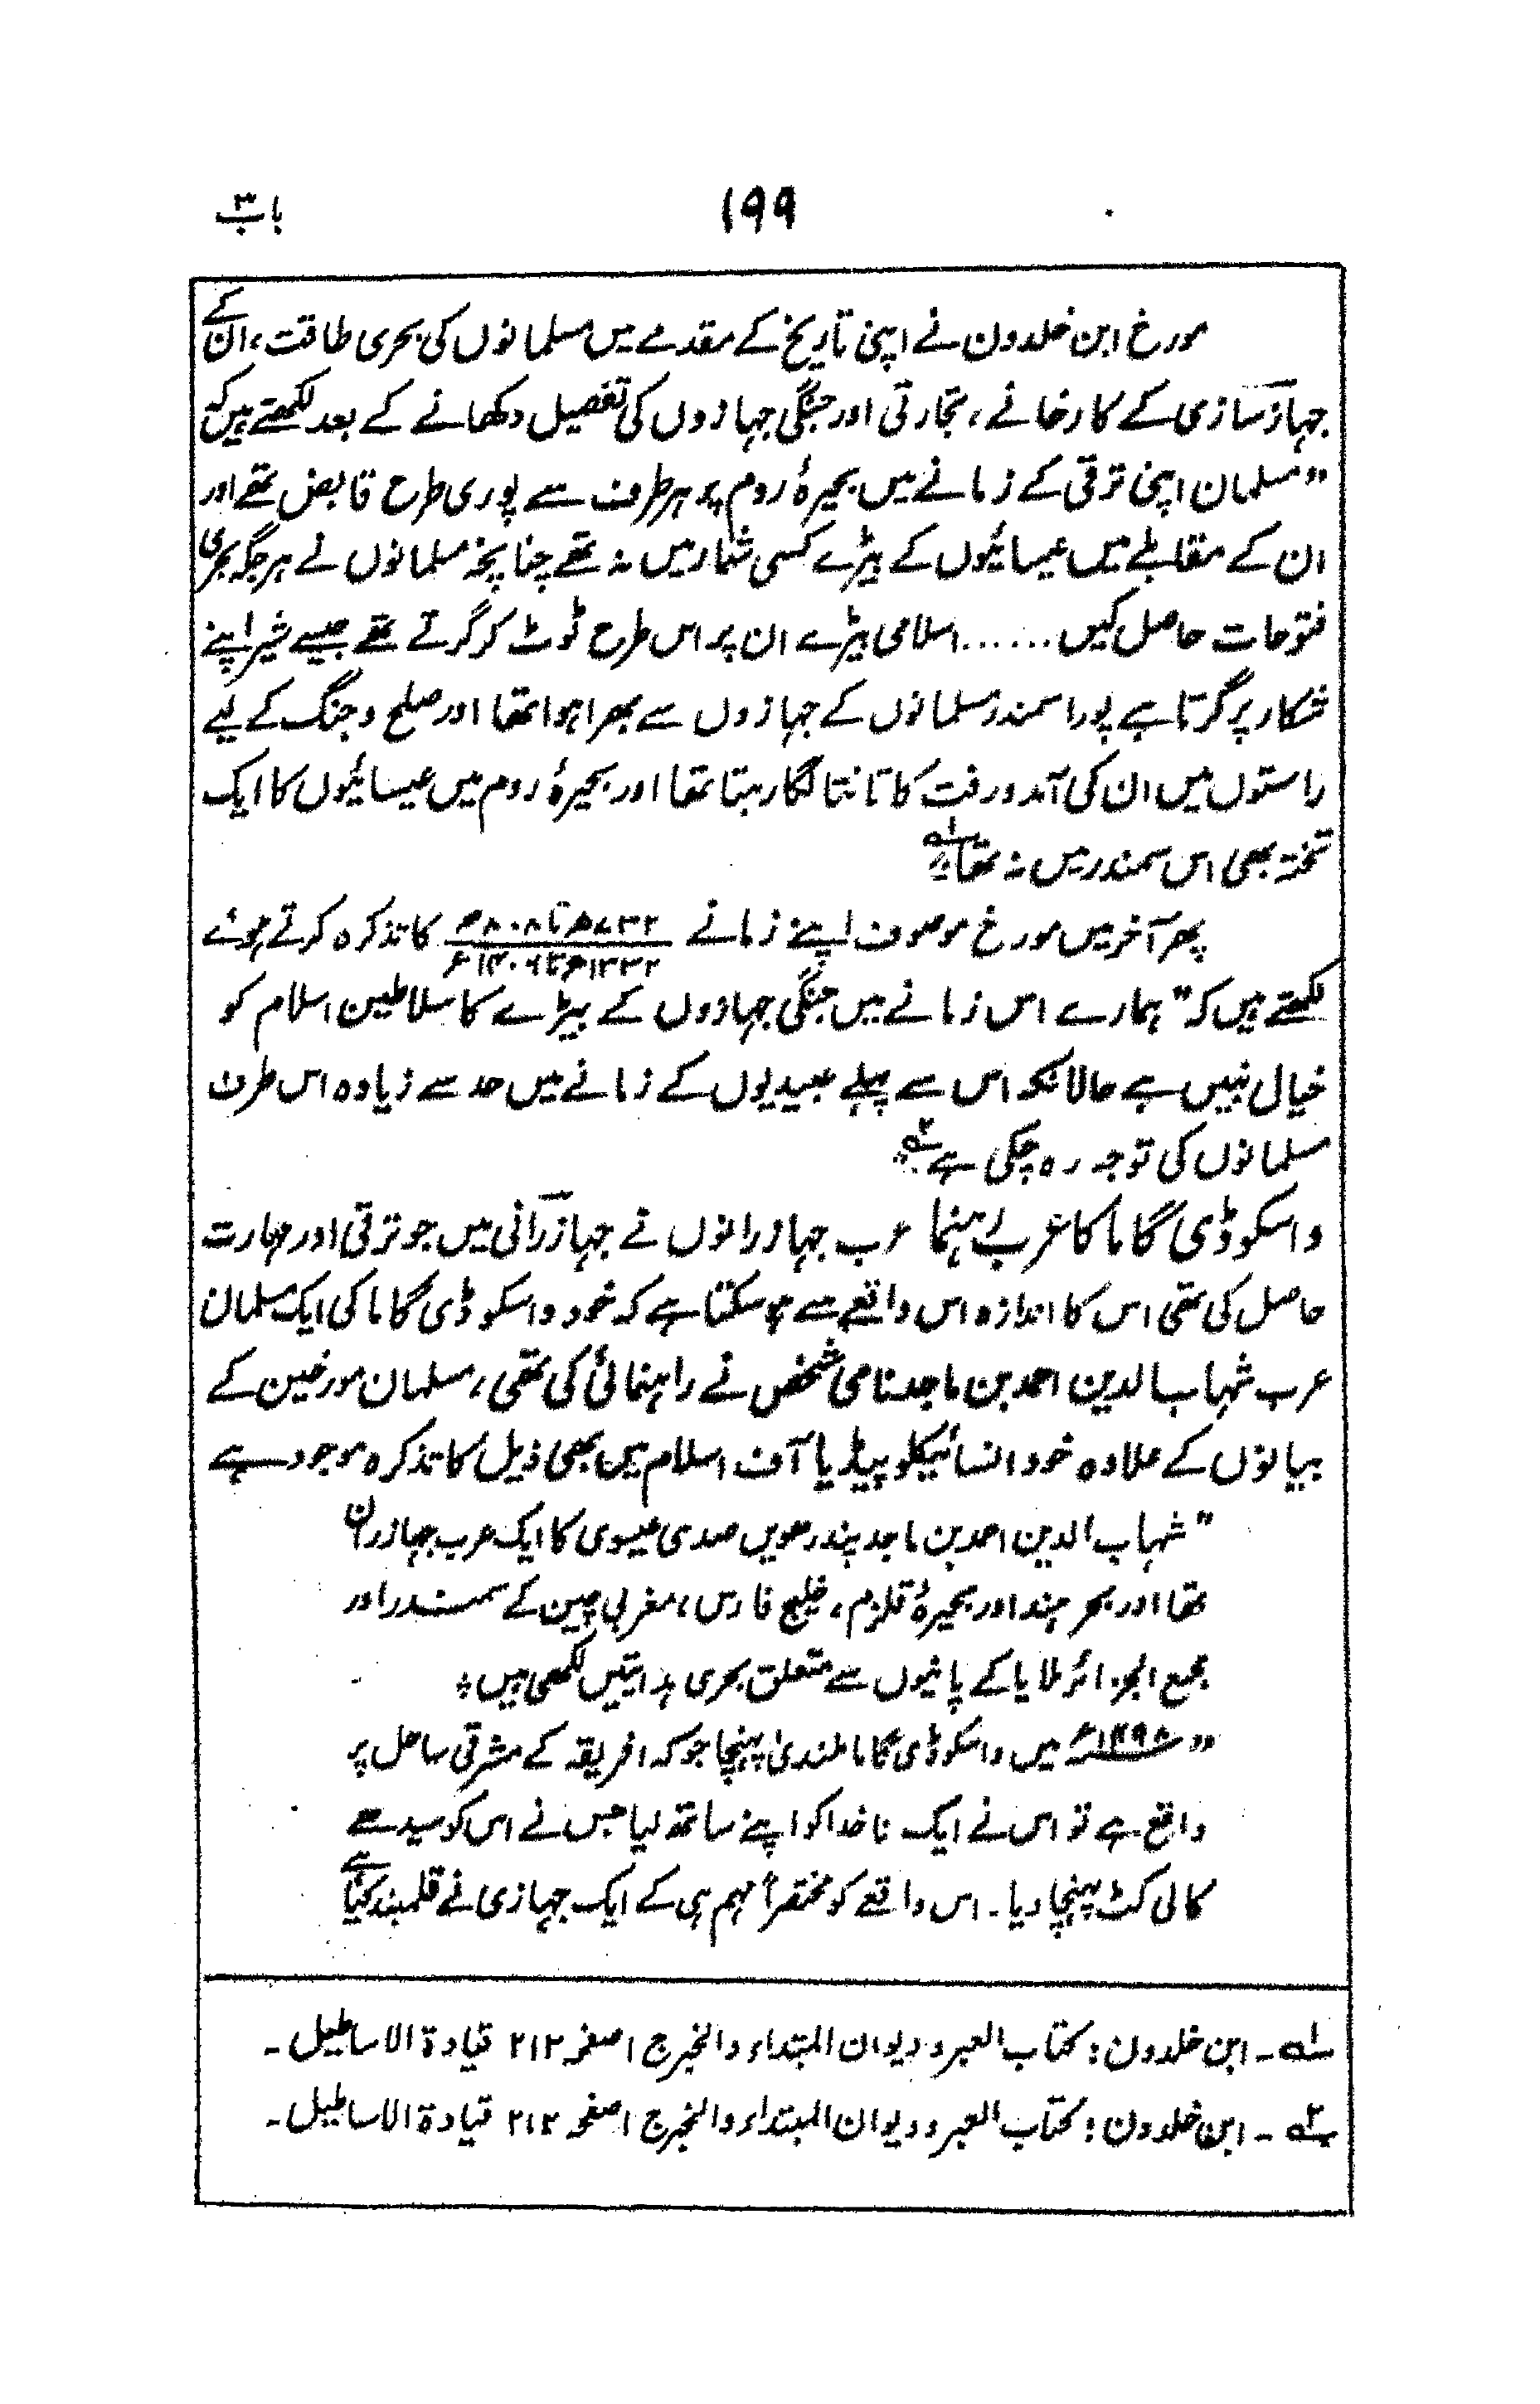 باب ۳
۱۹۹
مورخ ابن خلدون نے اپنی تاریخ کے مقدمے میں مسلمانوں کی بحری طاقت، ان کے
جہاز سازی کے کارخانے، تجارتی اور جنگی جہازوں کی تفصیل دکھانے کے بعد لکھتے ہیں کہ
"مسلمان اپنی ترقی کے زمانے میں بحیرۂ روم پر ہر طرف سے پوری طرح قابض تھے اور
ان کے مقابلے میں عیسائیوں کے بیڑے کسی شمار میں نہ تھے چنانچہ مسلمانوں نے ہر جگہ بحری
فتوحات حاصل کیں ...... اسلامی بیڑے ان پر اس طرح ٹوٹ کر گرتے تھے جیسے شیر اپنے
شکار پر گرتا ہے پورا سمندر مسلمانوں کے جہازوں سے بھرا ہوا تھا اور صلح و جنگ کے لیے
راستوں میں ان کی آمد و رفت کا تانتا لگا رہتا تھا اور بحیرۂ روم میں عیسائیوں کا ایک
تختہ بھی اس سمندر میں نہ تھا"۱؎
پھر آخر میں مورخ موصوف اپنے زمانے ۷۳۲ھ تا ۸۰۸ھ / ۱۳۳۲ء تا ۱۴۰۶ء کا تذکرہ کرتے ہوئے
لکھتے ہیں کہ "ہمارے اس زمانے میں جنگی جہازوں کے بیڑے کا سلاطین اسلام کو
خیال نہیں ہے حالانکہ اس سے پہلے عبیدیوں کے زمانے میں حد سے زیادہ اس طرف
مسلمانوں کی توجہ رہ چکی ہے"۲؎
واسکو ڈی گاما کا عرب رہنما عرب جہاز رانوں نے جہاز رانی میں جو ترقی اور مہارت
حاصل کی تھی اس کا اندازہ اس واقعے سے ہو سکتا ہے کہ خود واسکو ڈی گاما کی ایک مسلمان
عرب شہاب الدین احمد بن ماجد نامی شخص نے راہنمائی کی تھی، مسلمان مورخین کے
بیانوں کے علاوہ خود انسائیکلو پیڈیا آف اسلام میں بھی ذیل کا تذکرہ موجود ہے
"شہاب الدین احمد بن ماجد پندرھویں صدی عیسوی کا ایک عرب جہاز ران
تھا اور بحر ہند اور بحیرۂ قلزم، خلیج فارس، مغربی چین کے سمندر اور
مجمع الجزائر ملایا کے پانیوں سے متعلق بحری ہدایتیں لکھی ہیں؛
"۱۴۹۸ء میں واسکو ڈی گاما ملندیٰ پہنچا جو کہ افریقہ کے مشرقی ساحل پر
واقع ہے تو اس نے ایک ناخدا کو اپنے ساتھ لیا جس نے اس کو سیدھے
کالی کٹ پہنچا دیا۔ اس واقعے کو مختصراً مہم ہی کے ایک جہازی نے قلمبند کیا ہے
۱؎ ۔ ابن خلدون : کتاب العبر و دیوان المبتداء والخبر ج ۱ صفحہ ۲۱۲ قیادۃ الاساطیل۔
۲؎ ۔ ابن خلدون : کتاب العبر و دیوان المبتداء والخبر ج ۱ صفحہ ۲۱۲ قیادۃ الاساطیل۔